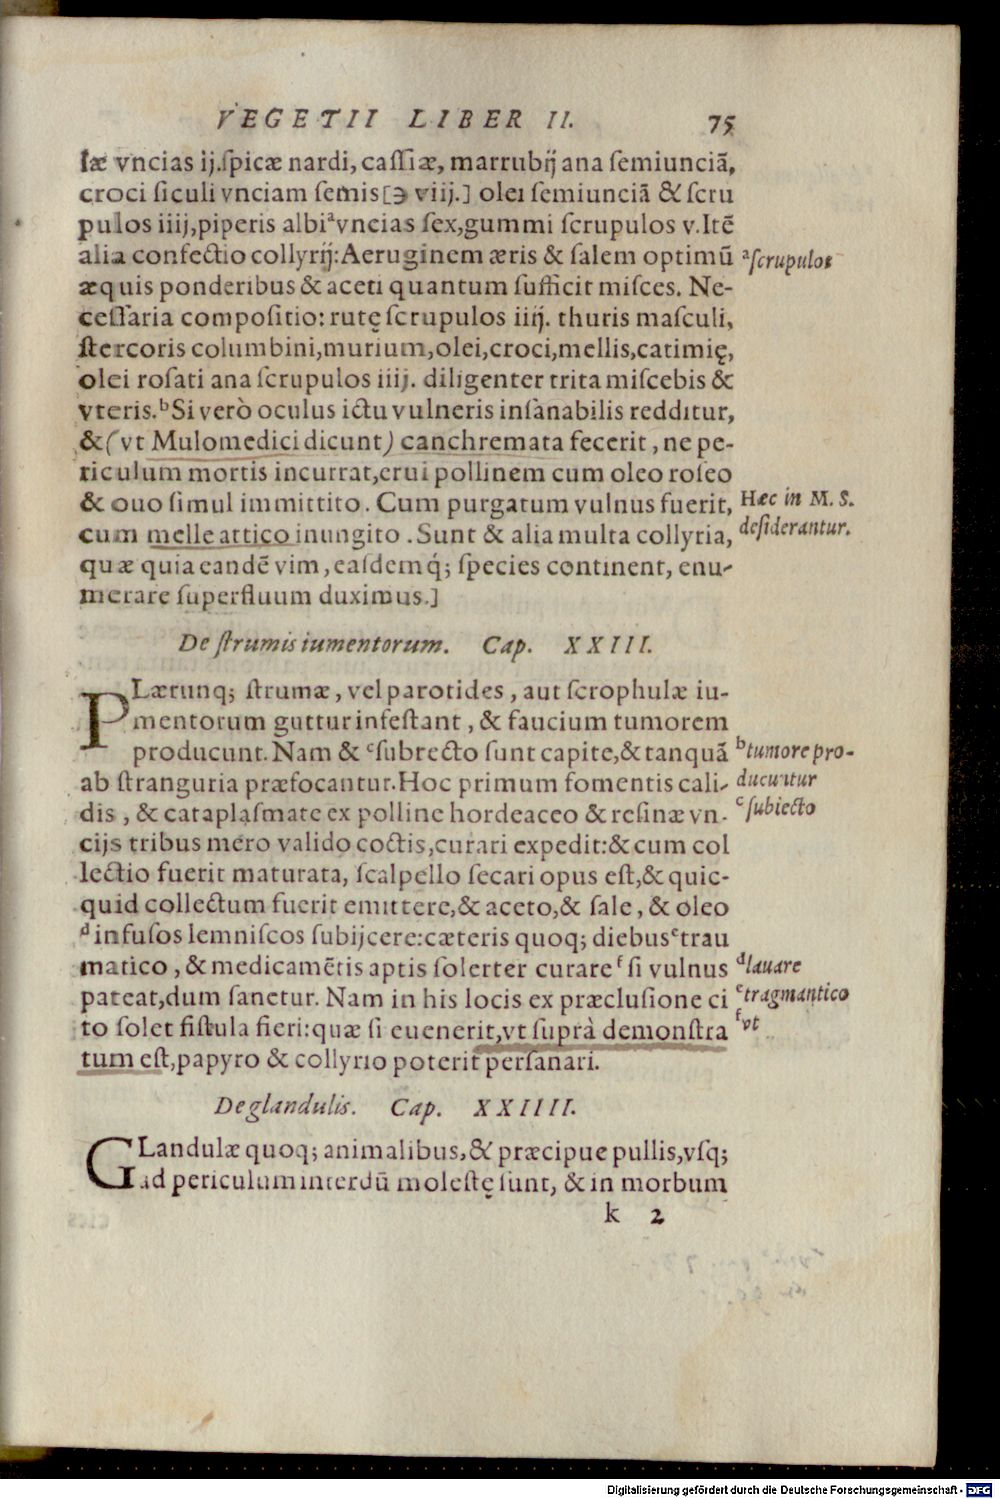 VEGETII LIBER II. 75
læ vncias ij.spicæ nardi, cassiæ, marrubij ana semiunciā,
croci siculi vnciam semis[℈ viij.] olei semiunciā & scru
pulos iiij, piperis albiᵃvncias sex, gummi scrupulos v. Itē
alia confectio collyrij: Aeruginem æris & salem optimū
ᵃscrupulos
æquis ponderibus & aceti quantum sufficit misces. Ne-
cessaria compositio: rutę scrupulos iiij. thuris masculi,
stercoris columbini, murium, olei, croci, mellis, catimię,
olei rosati ana scrupulos iiij. diligenter trita miscebis &
vteris.ᵇSi verò oculus ictu vulneris insanabilis redditur,
&(vt Mulomedici dicunt) canchremata fecerit, ne pe-
riculum mortis incurrat, erui pollinem cum oleo roseo
& ouo simul immittito. Cum purgatum vulnus fuerit,
Hæc in M. S.
cum melle attico inungito. Sunt & alia multa collyria,
desiderantur.
quæ quia eandē vim, easdemq́; species continent, enu-
merare superfluum duximus.]
De strumis iumentorum. Cap. XXIII.
PLærunq; strumæ, vel parotides, aut scrophulæ iu-
mentorum guttur infestant, & faucium tumorem
producunt. Nam & ᶜsubrecto sunt capite, & tanquā
ᵇtumore pro-
ab stranguria præfocantur. Hoc primum fomentis cali-
ducuntur
dis, & cataplasmate ex polline hordeaceo & resinæ vn-
ᶜsubiecto
cijs tribus mero valido coctis, curari expedit: & cum col
lectio fuerit maturata, scalpello secari opus est, & quic-
quid collectum fuerit emittere, & aceto, & sale, & oleo
ᵈinfusos lemniscos subijcere: cæteris quoq; diebusᵉtrau
matico, & medicamētis aptis solerter curareᶠsi vulnus
ᵈlauare
pateat, dum sanetur. Nam in his locis ex præclusione ci
ᵉtragmantico
to solet fistula fieri: quæ si euenerit, vt suprà demonstra
ᶠvt
tum est, papyro & collyrio poterit persanari.
De glandulis. Cap. XXIIII.
GLandulæ quoq; animalibus, & præcipue pullis, vsq;
ad periculum interdū molestę sunt, & in morbum
k 2
Digitalisierung gefördert durch die Deutsche Forschungsgemeinschaft - DFG